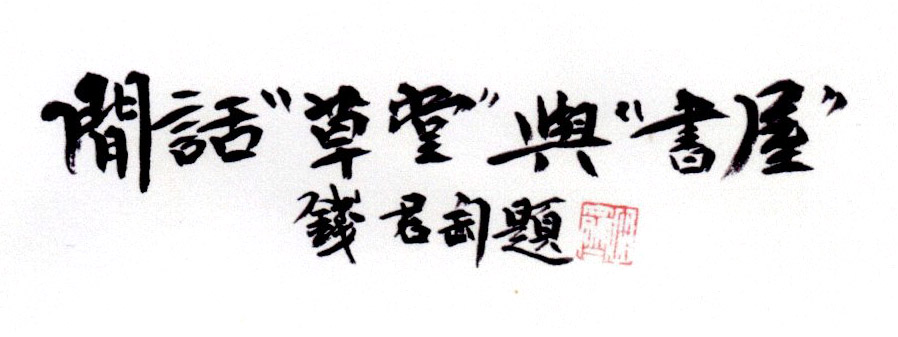 閒話“草堂”與“書屋”
錢君匋題